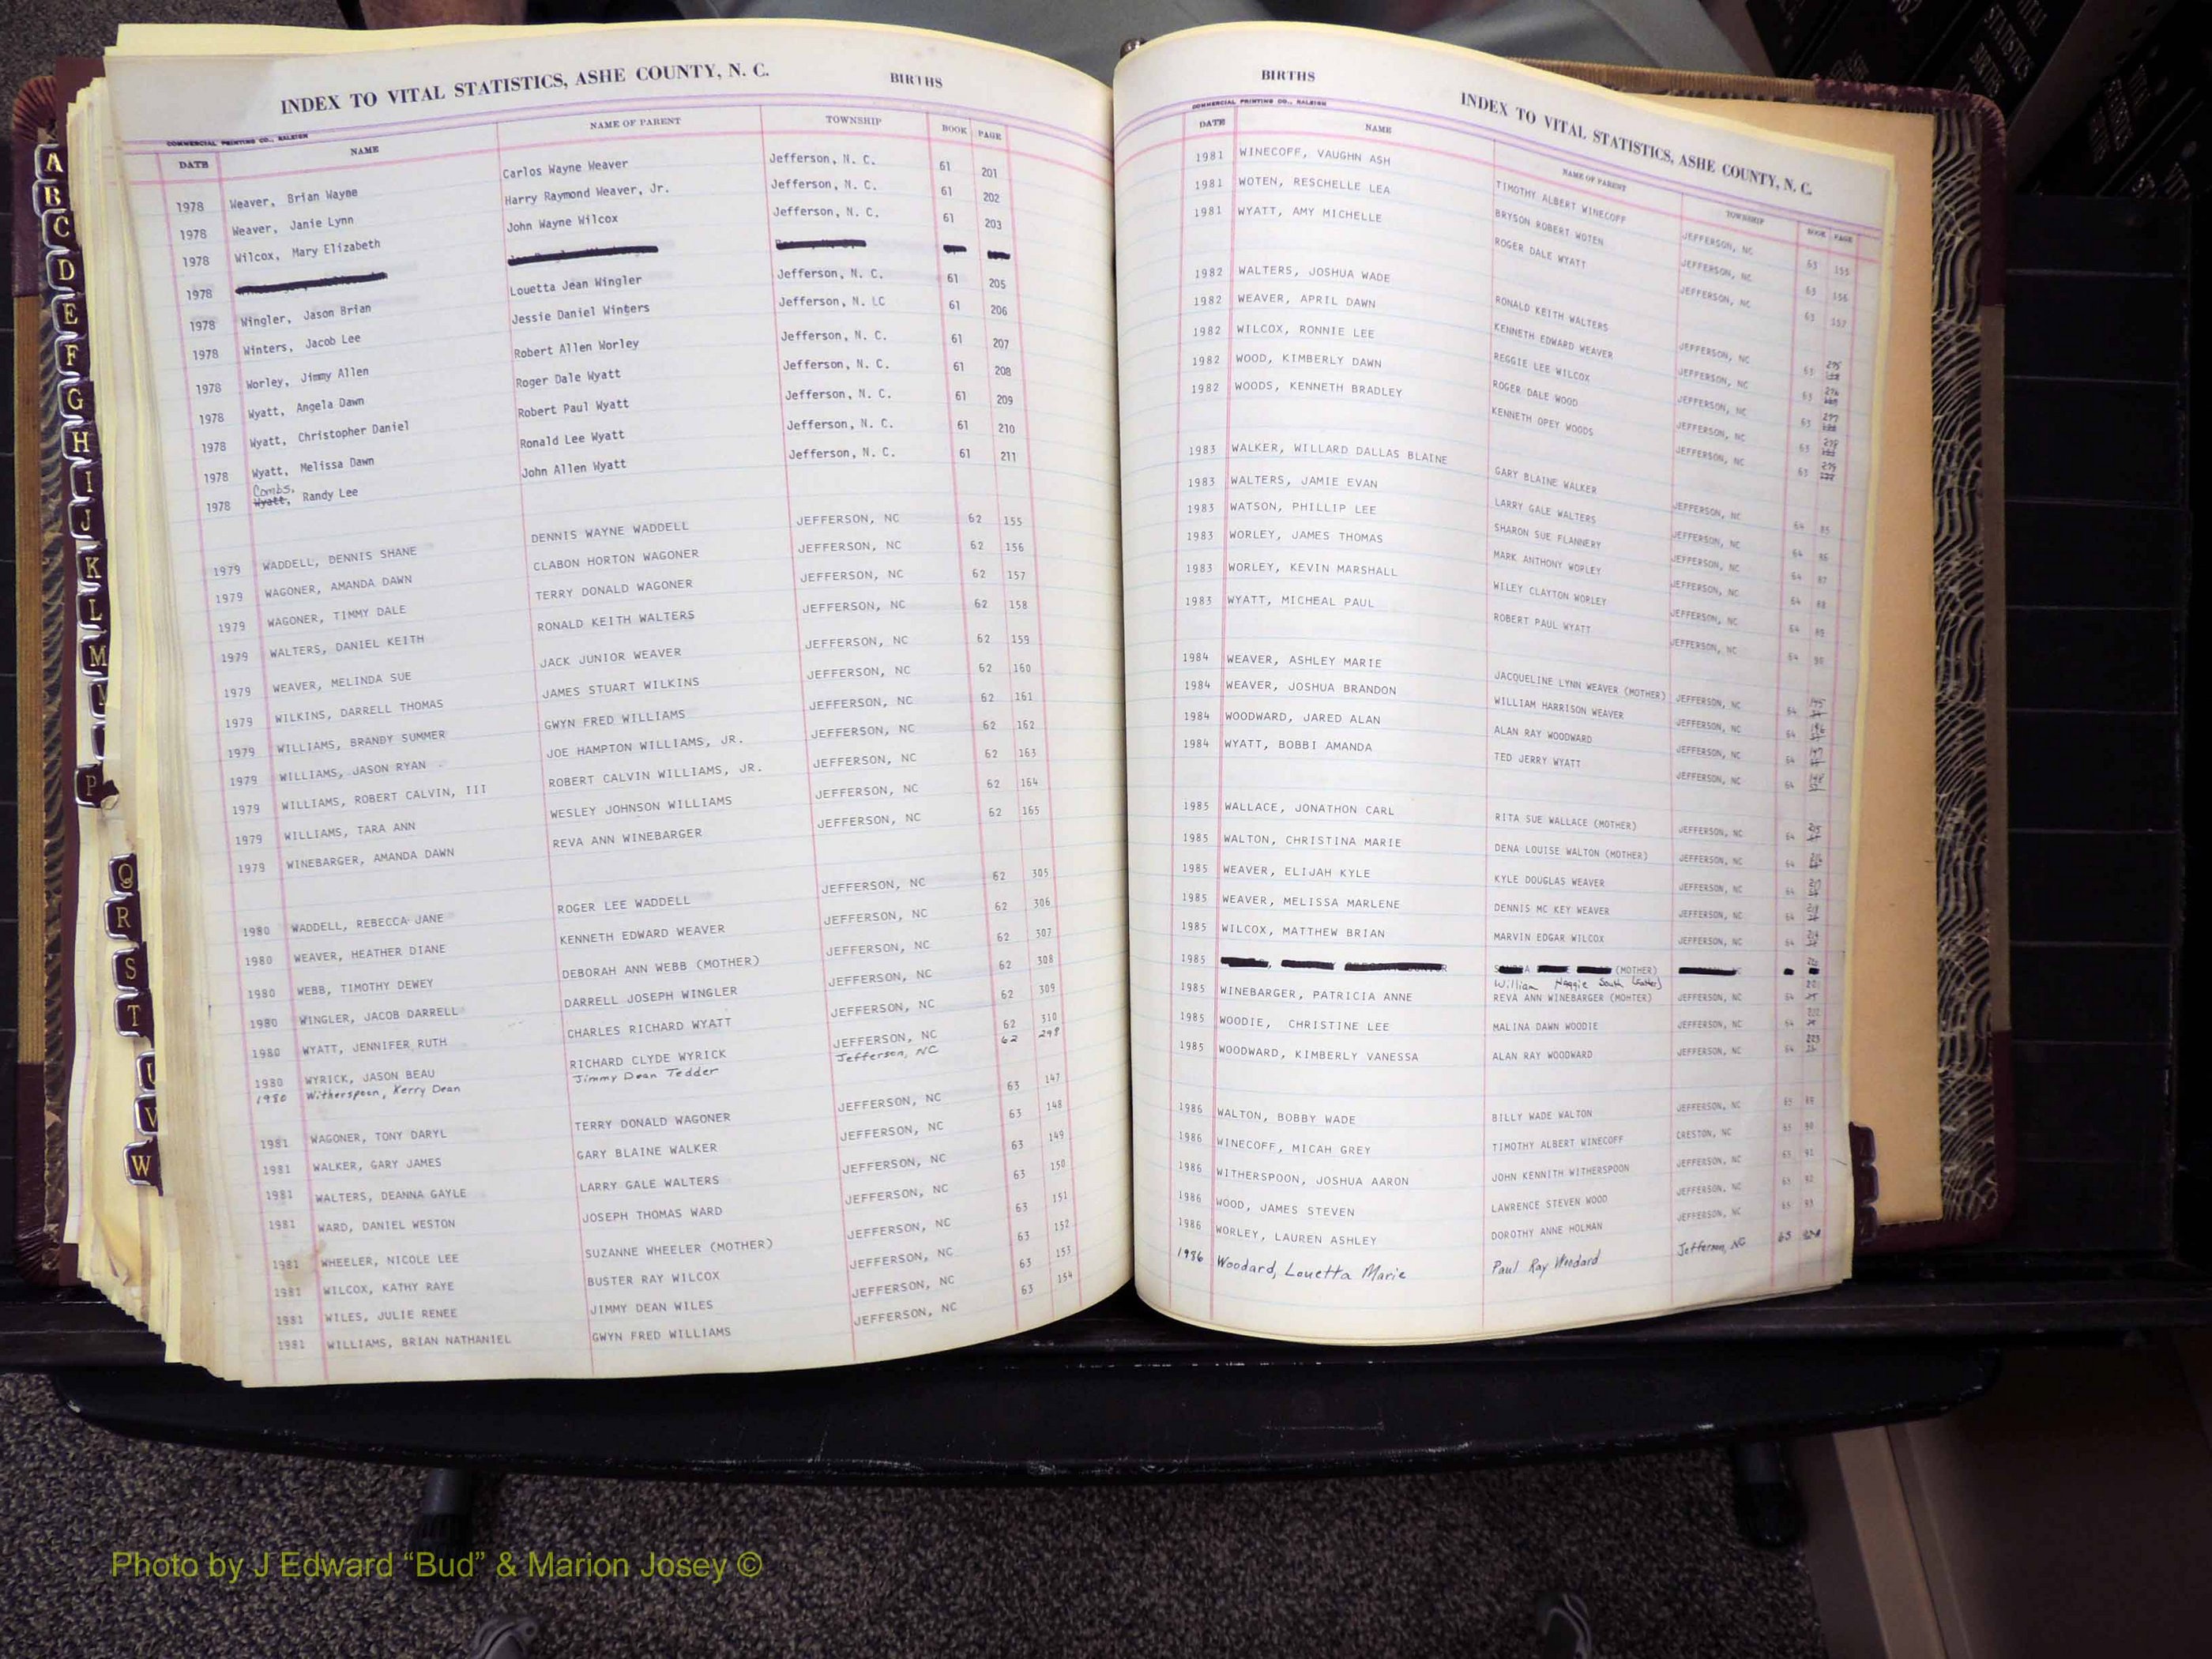 INDEX TO VITAL STATISTICS, ASHE COUNTY, N. C. BIRTHS
COMMERCIAL PRINTING CO., RALEIGH
DATE NAME NAME OF PARENT TOWNSHIP BOOK PAGE
1978 Weaver, Brian Wayne Carlos Wayne Weaver Jefferson, N. C. 61 201
1978 Weaver, Janie Lynn Harry Raymond Weaver, Jr. Jefferson, N. C. 61 202
1978 Wilcox, Mary Elizabeth John Wayne Wilcox Jefferson, N. C. 61 203
1978
1978 Wingler, Jason Brian Louetta Jean Wingler Jefferson, N. C. 61 205
1978 Winters, Jacob Lee Jessie Daniel Winters Jefferson, N. LC 61 206
1978 Worley, Jimmy Allen Robert Allen Worley Jefferson, N. C. 61 207
1978 Wyatt, Angela Dawn Roger Dale Wyatt Jefferson, N. C. 61 208
1978 Wyatt, Christopher Daniel Robert Paul Wyatt Jefferson, N. C. 61 209
1978 Wyatt, Melissa Dawn Ronald Lee Wyatt Jefferson, N. C. 61 210
Combs,
1978 Wyatt, Randy Lee John Allen Wyatt Jefferson, N. C. 61 211
1979 WADDELL, DENNIS SHANE DENNIS WAYNE WADDELL JEFFERSON, NC 62 155
1979 WAGONER, AMANDA DAWN CLABON HORTON WAGONER JEFFERSON, NC 62 156
1979 WAGONER, TIMMY DALE TERRY DONALD WAGONER JEFFERSON, NC 62 157
1979 WALTERS, DANIEL KEITH RONALD KEITH WALTERS JEFFERSON, NC 62 158
1979 WEAVER, MELINDA SUE JACK JUNIOR WEAVER JEFFERSON, NC 62 159
1979 WILKINS, DARRELL THOMAS JAMES STUART WILKINS JEFFERSON, NC 62 160
1979 WILLIAMS, BRANDY SUMMER GWYN FRED WILLIAMS JEFFERSON, NC 62 161
1979 WILLIAMS, JASON RYAN JOE HAMPTON WILLIAMS, JR. JEFFERSON, NC 62 162
1979 WILLIAMS, ROBERT CALVIN, III ROBERT CALVIN WILLIAMS, JR. JEFFERSON, NC 62 163
1979 WILLIAMS, TARA ANN WESLEY JOHNSON WILLIAMS JEFFERSON, NC 62 164
1979 WINEBARGER, AMANDA DAWN REVA ANN WINEBARGER JEFFERSON, NC 62 165
1980 WADDELL, REBECCA JANE ROGER LEE WADDELL JEFFERSON, NC 62 305
1980 WEAVER, HEATHER DIANE KENNETH EDWARD WEAVER JEFFERSON, NC 62 306
1980 WEBB, TIMOTHY DEWEY DEBORAH ANN WEBB (MOTHER) JEFFERSON, NC 62 307
1980 WINGLER, JACOB DARRELL DARRELL JOSEPH WINGLER JEFFERSON, NC 62 308
1980 WYATT, JENNIFER RUTH CHARLES RICHARD WYATT JEFFERSON, NC 62 309
1980 WYRICK, JASON BEAU RICHARD CLYDE WYRICK JEFFERSON, NC 62 310
1980 Witherspoon, Kerry Dean Jimmy Dean Tedder Jefferson, NC 62 298
1981 WAGONER, TONY DARYL TERRY DONALD WAGONER JEFFERSON, NC 63 147
1981 WALKER, GARY JAMES GARY BLAINE WALKER JEFFERSON, NC 63 148
1981 WALTERS, DEANNA GAYLE LARRY GALE WALTERS JEFFERSON, NC 63 149
1981 WARD, DANIEL WESTON JOSEPH THOMAS WARD JEFFERSON, NC 63 150
1981 WHEELER, NICOLE LEE SUZANNE WHEELER (MOTHER) JEFFERSON, NC 63 151
1981 WILCOX, KATHY RAYE BUSTER RAY WILCOX JEFFERSON, NC 63 152
1981 WILES, JULIE RENEE JIMMY DEAN WILES JEFFERSON, NC 63 153
1981 WILLIAMS, BRIAN NATHANIEL GWYN FRED WILLIAMS JEFFERSON, NC 63 154
BIRTHS INDEX TO VITAL STATISTICS, ASHE COUNTY, N. C.
COMMERCIAL PRINTING CO., RALEIGH
DATE NAME NAME OF PARENT TOWNSHIP BOOK PAGE
1981 WINECOFF, VAUGHN ASH TIMOTHY ALBERT WINECOFF JEFFERSON, NC 63 155
1981 WOTEN, RESCHELLE LEA BRYSON ROBERT WOTEN JEFFERSON, NC 63 156
1981 WYATT, AMY MICHELLE ROGER DALE WYATT JEFFERSON, NC 63 157
1982 WALTERS, JOSHUA WADE RONALD KEITH WALTERS JEFFERSON, NC 63
1982 WEAVER, APRIL DAWN KENNETH EDWARD WEAVER JEFFERSON, NC 63
1982 WILCOX, RONNIE LEE REGGIE LEE WILCOX JEFFERSON, NC 63
1982 WOOD, KIMBERLY DAWN ROGER DALE WOOD JEFFERSON, NC 63
1982 WOODS, KENNETH BRADLEY KENNETH OPEY WOODS JEFFERSON, NC 63
1983 WALKER, WILLARD DALLAS BLAINE GARY BLAINE WALKER JEFFERSON, NC 64 85
1983 WALTERS, JAMIE EVAN LARRY GALE WALTERS JEFFERSON, NC 64 86
1983 WATSON, PHILLIP LEE SHARON SUE FLANNERY JEFFERSON, NC 64 87
1983 WORLEY, JAMES THOMAS MARK ANTHONY WORLEY JEFFERSON, NC 64 88
1983 WORLEY, KEVIN MARSHALL WILEY CLAYTON WORLEY JEFFERSON, NC 64 89
1983 WYATT, MICHEAL PAUL ROBERT PAUL WYATT JEFFERSON, NC 64 90
1984 WEAVER, ASHLEY MARIE JACQUELINE LYNN WEAVER (MOTHER) JEFFERSON, NC 64
1984 WEAVER, JOSHUA BRANDON WILLIAM HARRISON WEAVER JEFFERSON, NC 64
1984 WOODWARD, JARED ALAN ALAN RAY WOODWARD JEFFERSON, NC 64
1984 WYATT, BOBBI AMANDA TED JERRY WYATT JEFFERSON, NC 64
1985 WALLACE, JONATHON CARL RITA SUE WALLACE (MOTHER) JEFFERSON, NC 64
1985 WALTON, CHRISTINA MARIE DENA LOUISE WALTON (MOTHER) JEFFERSON, NC 64
1985 WEAVER, ELIJAH KYLE KYLE DOUGLAS WEAVER JEFFERSON, NC 64
1985 WEAVER, MELISSA MARLENE DENNIS MC KEY WEAVER JEFFERSON, NC 64
1985 WILCOX, MATTHEW BRIAN MARVIN EDGAR WILCOX JEFFERSON, NC 64
1985 (MOTHER)
William South (father)
1985 WINEBARGER, PATRICIA ANNE REVA ANN WINEBARGER (MOHTER) JEFFERSON, NC 64
1985 WOODIE, CHRISTINE LEE MALINA DAWN WOODIE JEFFERSON, NC 64
1985 WOODWARD, KIMBERLY VANESSA ALAN RAY WOODWARD JEFFERSON, NC 64
1986 WALTON, BOBBY WADE BILLY WADE WALTON JEFFERSON, NC 65 89
1986 WINECOFF, MICAH GREY TIMOTHY ALBERT WINECOFF CRESTON, NC 65 90
1986 WITHERSPOON, JOSHUA AARON JOHN KENNITH WITHERSPOON JEFFERSON, NC 65 91
1986 WOOD, JAMES STEVEN LAWRENCE STEVEN WOOD JEFFERSON, NC 65 92
1986 WORLEY, LAUREN ASHLEY DOROTHY ANNE HOLMAN JEFFERSON, NC 65 93
1986 Woodard, Louetta Marie Paul Ray Woodard Jefferson, NC 65
A
B
C
D
E
F
G
H
I
J
K
L
M
P
Q
R
S
T
U
V
W
VITAL
STATISTICS
BIRTHS
Photo by J Edward “Bud” & Marion Josey ©